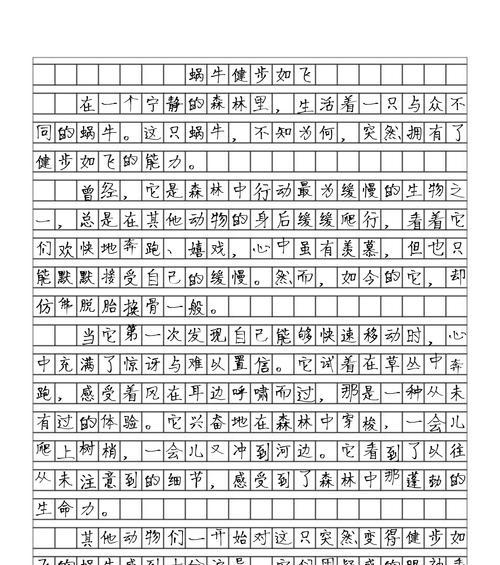 蜗牛健步如飞
在一个宁静的森林里，生活着一只与众不
同的蜗牛。这只蜗牛，不知为何，突然拥有了
健步如飞的能力。
曾经，它是森林中行动最为缓慢的生物之
一，总是在其他动物的身后缓缓爬行，看着它
们欢快地奔跑、嬉戏，心中虽有羡慕，但也只
能默默接受自己的缓慢。然而，如今的它，却
仿佛脱胎换骨一般。
当它第一次发现自己能够快速移动时，心
中充满了惊讶与难以置信。它试着在草丛中奔
跑，感受着风在耳边呼啸而过，那是一种从未
有过的体验。它兴奋地在森林中穿梭，一会儿
爬上树梢，一会儿又冲到河边。它看到了以往
从未注意到的细节，感受到了森林中那蓬勃的
生命力。
其他动物们一开始对这只突然变得健步如
飞的蜗牛感到